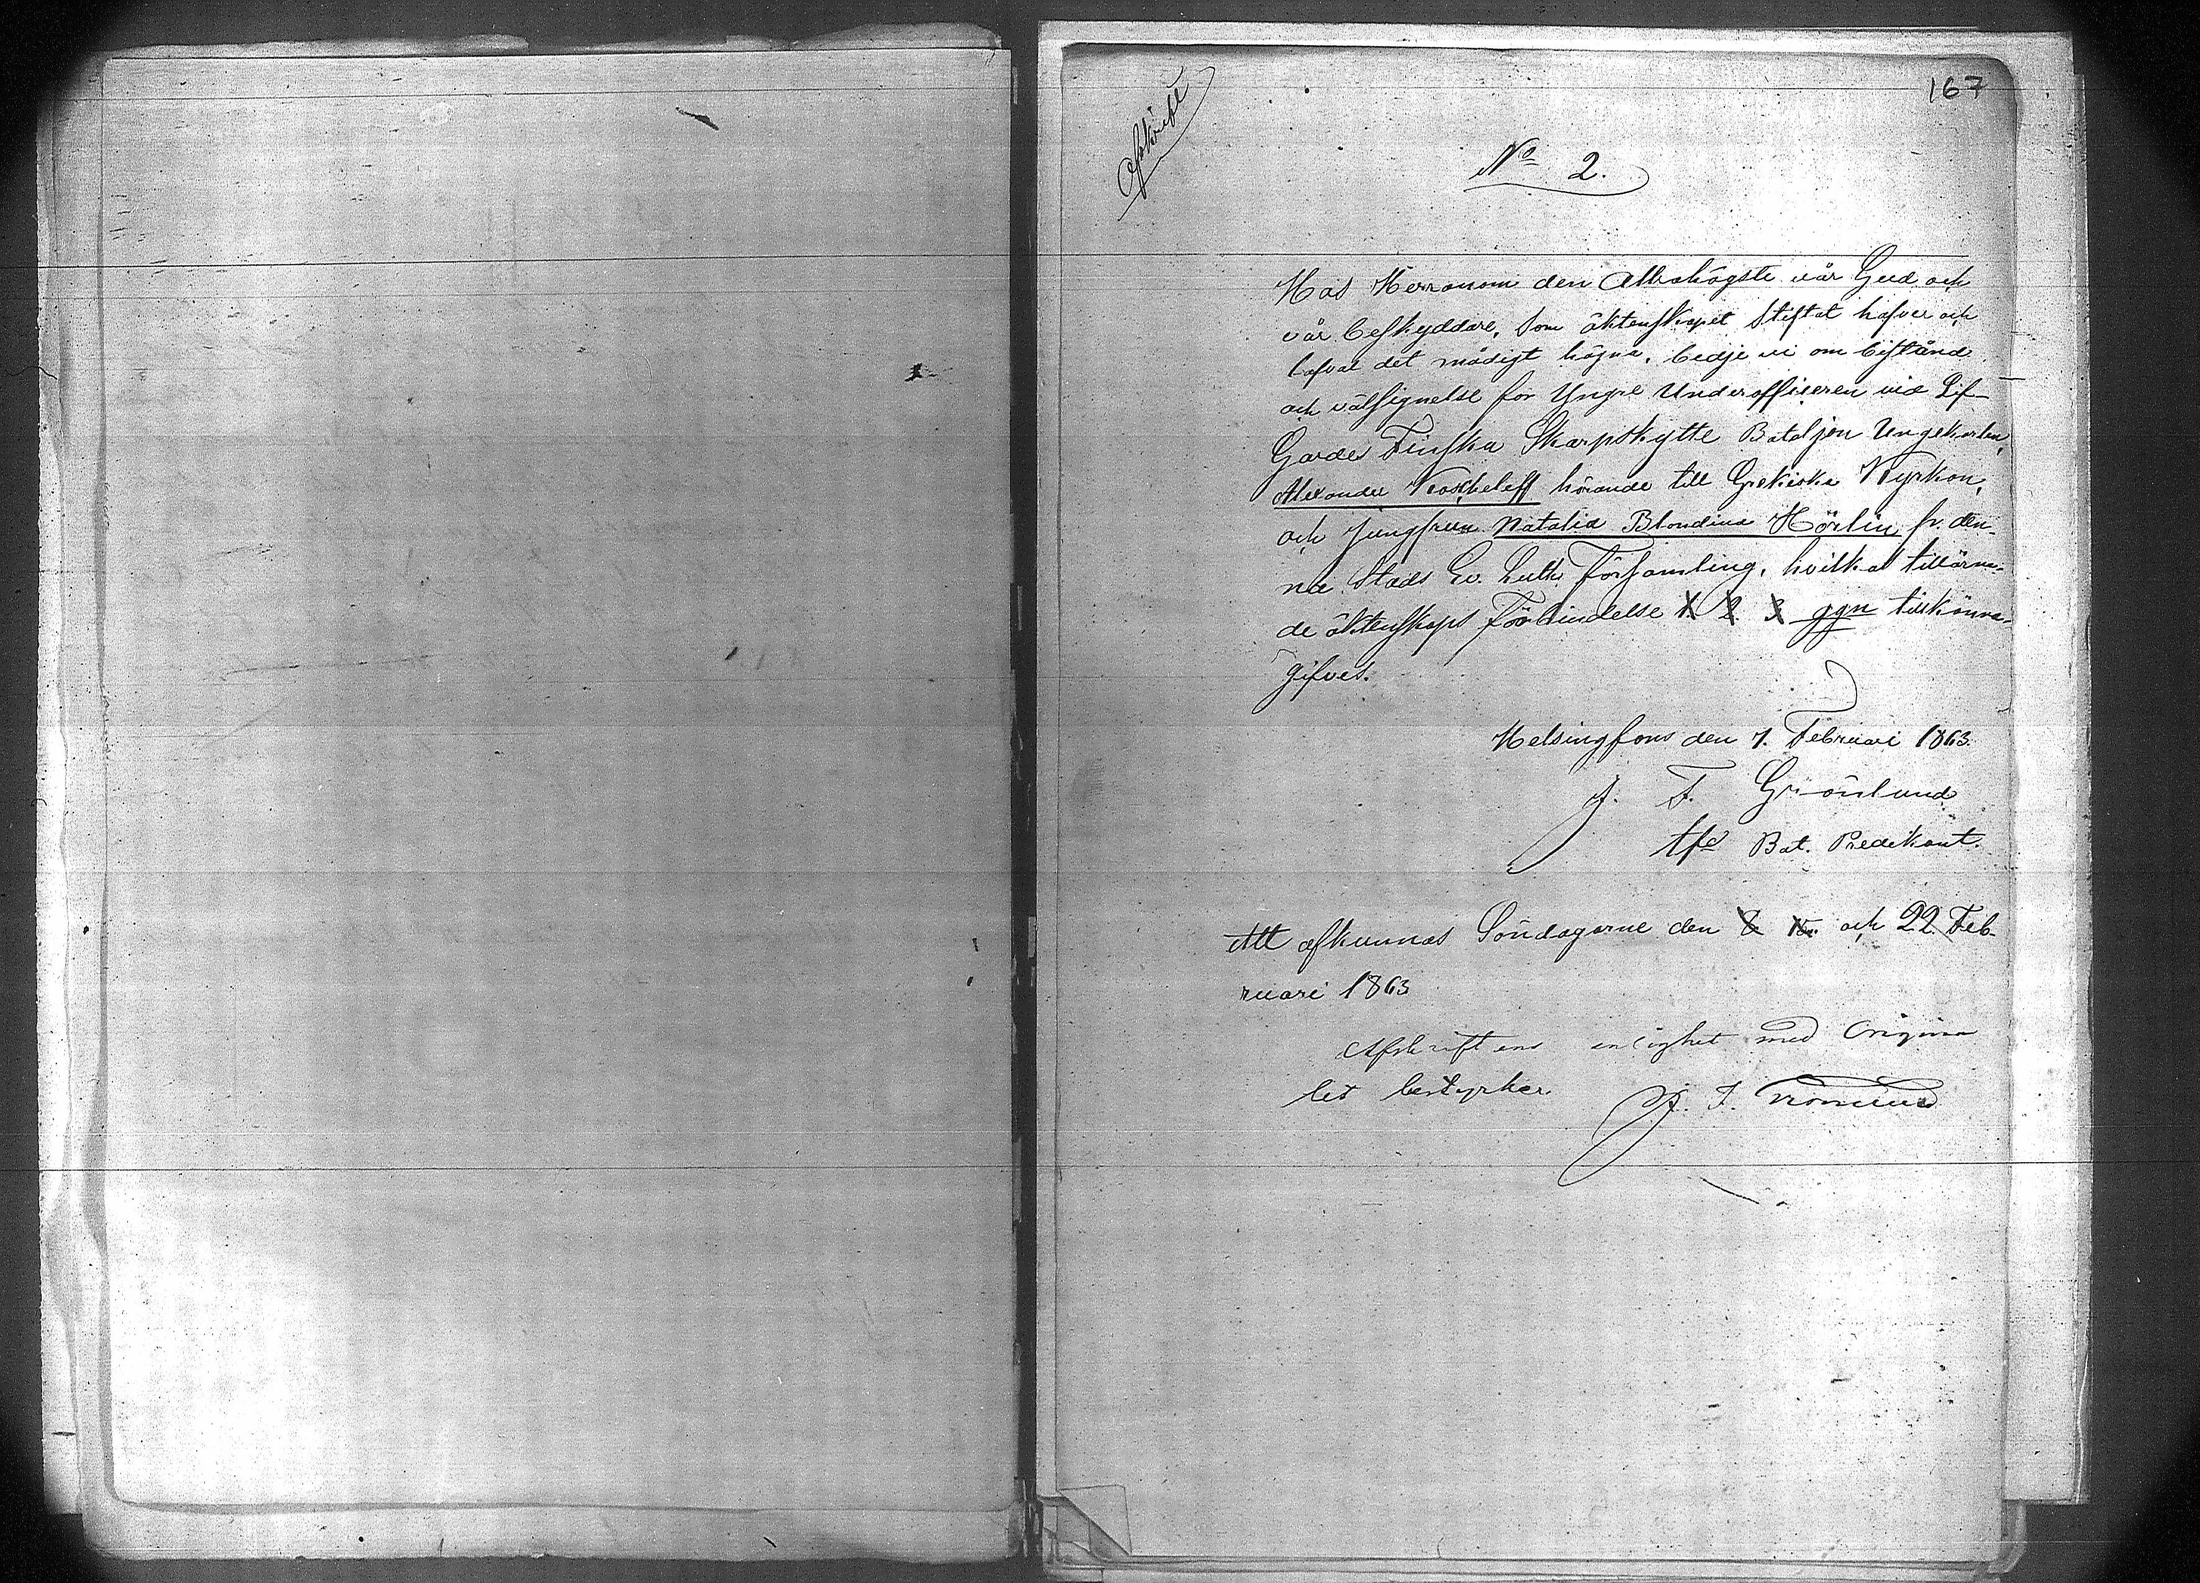 167
Afskrift
No 2.
Hos Herranom den Allrahögste vår Gud och
vår Beskyddare, som äktenskapet stiftat hafver och
lofvat det mådigt hägna, bedje vi om bistånd
och välsignelse för Yngre Underofficeren vid Lif-
Gardes Finska Skarpskytte Bataljon Ungekarlen,
Alexander Koscheleff hörande till Grekiska Kyrkon,
och Jungfrun Natalia Blondina Hörlin, fr. den-
na Stads Ev. Luth. Församling, hvilka tillärna-
de äktenskaps Förbindelse 1. 2. 3 ggn tillkänna-
gifves.
Helsingfors den 7. Februari 1863.
J. F. Grönlund
Tfd Bat. Predikant.
Att afkunnas Söndagarne den 8 15 och 22 Feb-
ruari 1863
Afskriftens enlighet med Origina
let bestyrker.
J. F.